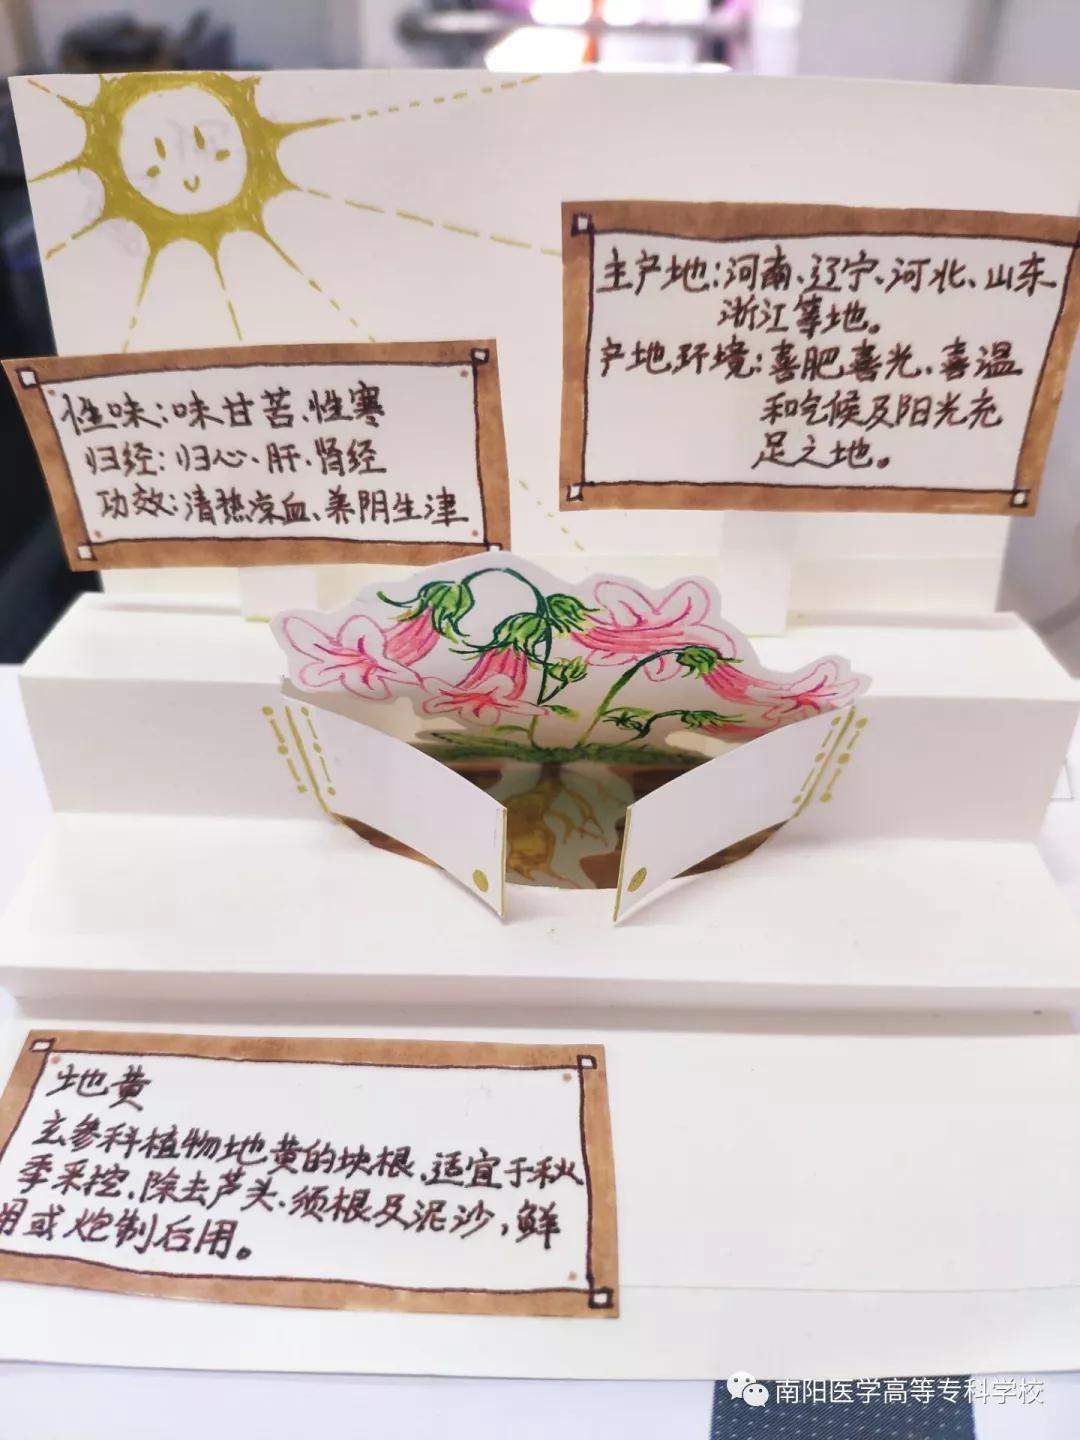 主产地:河南、辽宁、河北、山东
浙江等地。
产地环境:喜肥喜光、喜温
和气候及阳光充
足之地。
性味:味甘苦、性寒
归经:归心、肝、肾经
功效:清热凉血、养阴生津
地黄
玄参科植物地黄的块根、适宜于秋
季采挖、除去芦头、须根及泥沙,鲜
用或炮制后用。
南阳医学高等专科学校